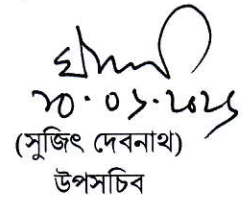 ২০.০১.২০২৬
(সুজিৎ দেবনাথ)
উপসচিব